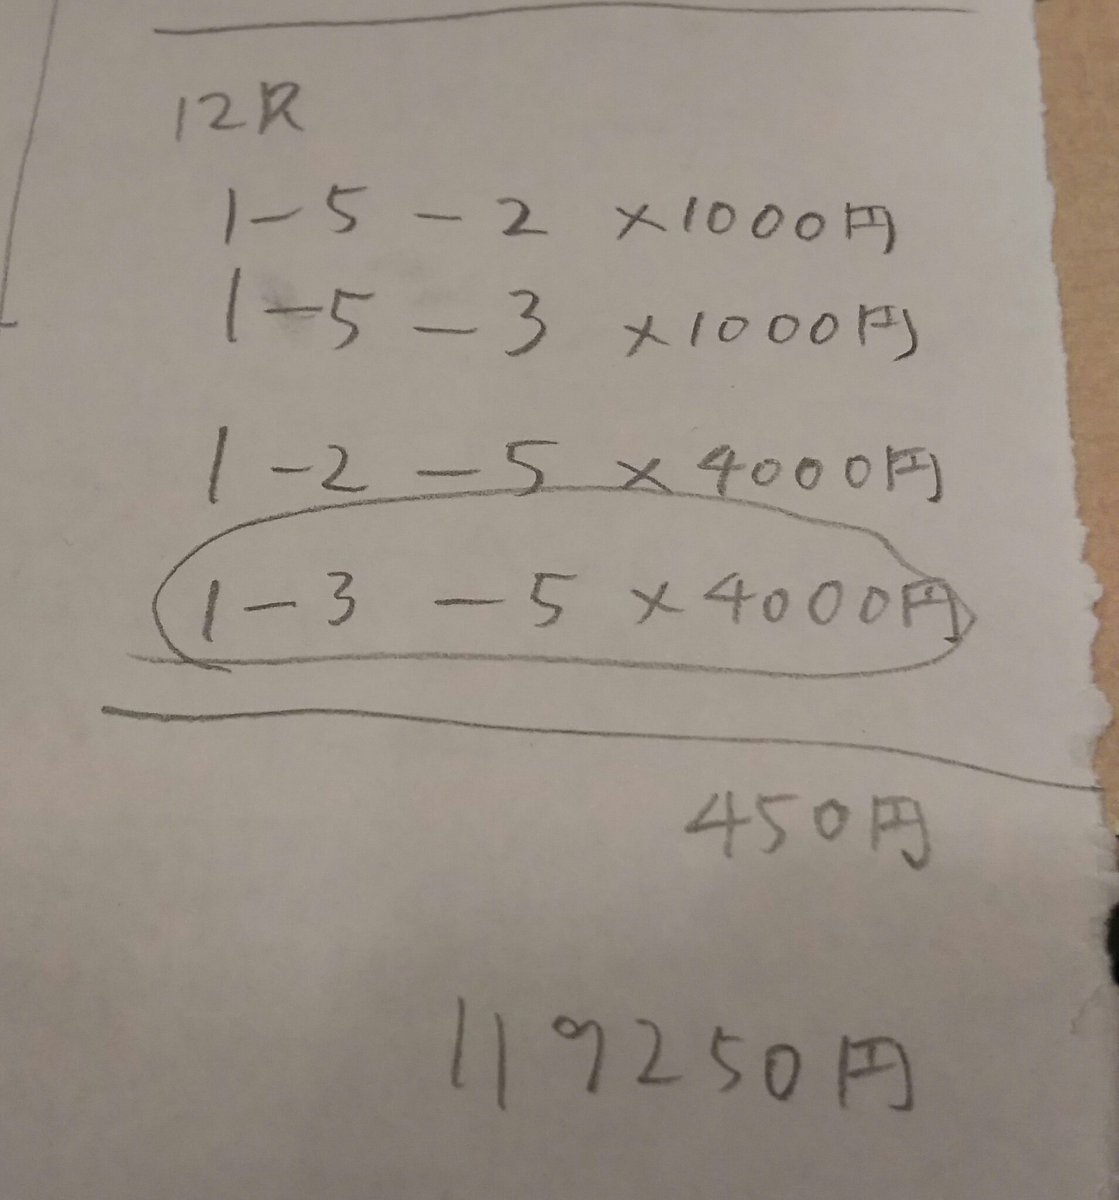 12R
1-5-2 ×1000円
1-5-3 ×1000円
1-2-5 ×4000円
1-3-5×4000円
450円
119250円